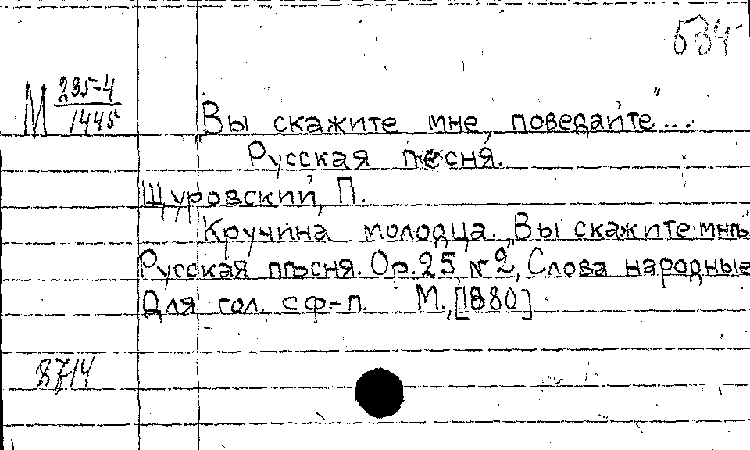 534
М 295-4/1445
„Вы скажите мне, поведайте"...
Русская песня.
Щуровский, П.
Кручина молодца. „Вы скажите мнѣ"
Русская пѣсня. Ор. 25 № 2, Слова народные
Для гол. с ф-п. М., [1880].
8714